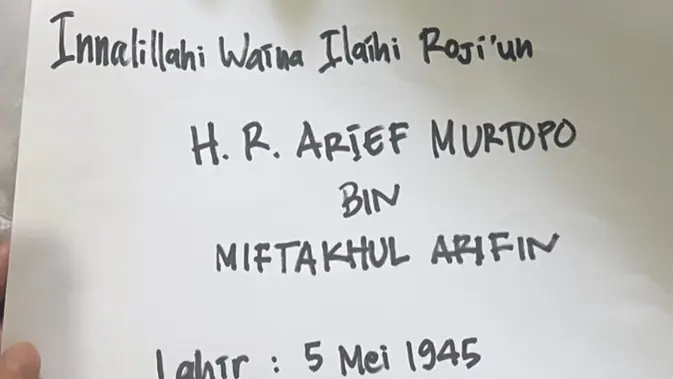 Innalillahi Waina Ilaihi Roji'un
H. R. ARIEF MURTOPO
BIN
MIFTAKHUL ARIFIN
Lahir : 5 Mei 1945